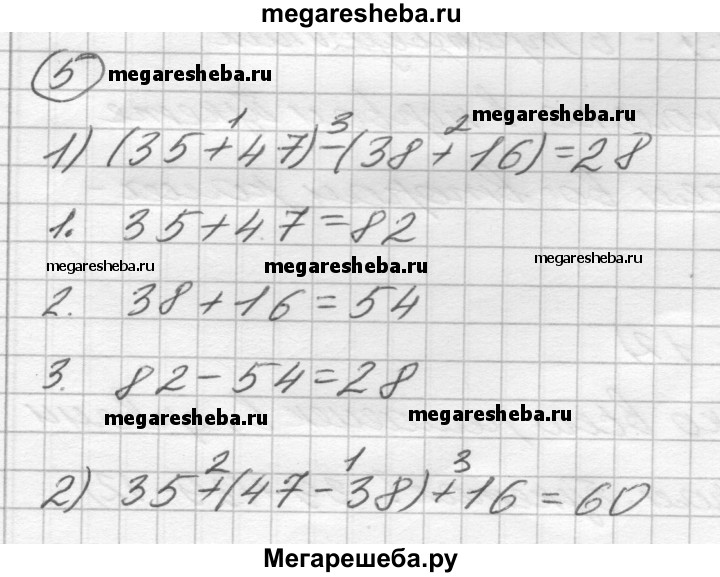 megaresheba.ru
5 megaresheba.ru
megaresheba.ru
1 3 2
1) (35+47)-(38+16)=28
1. 35+47=82
megaresheba.ru megaresheba.ru megaresheba.ru
2. 38+16=54
3. 82-54=28
megaresheba.ru megaresheba.ru
2 1 3
2) 35+(47-38)+16=60
megaresheba.ru megaresheba.ru
Мегарешеба.ру